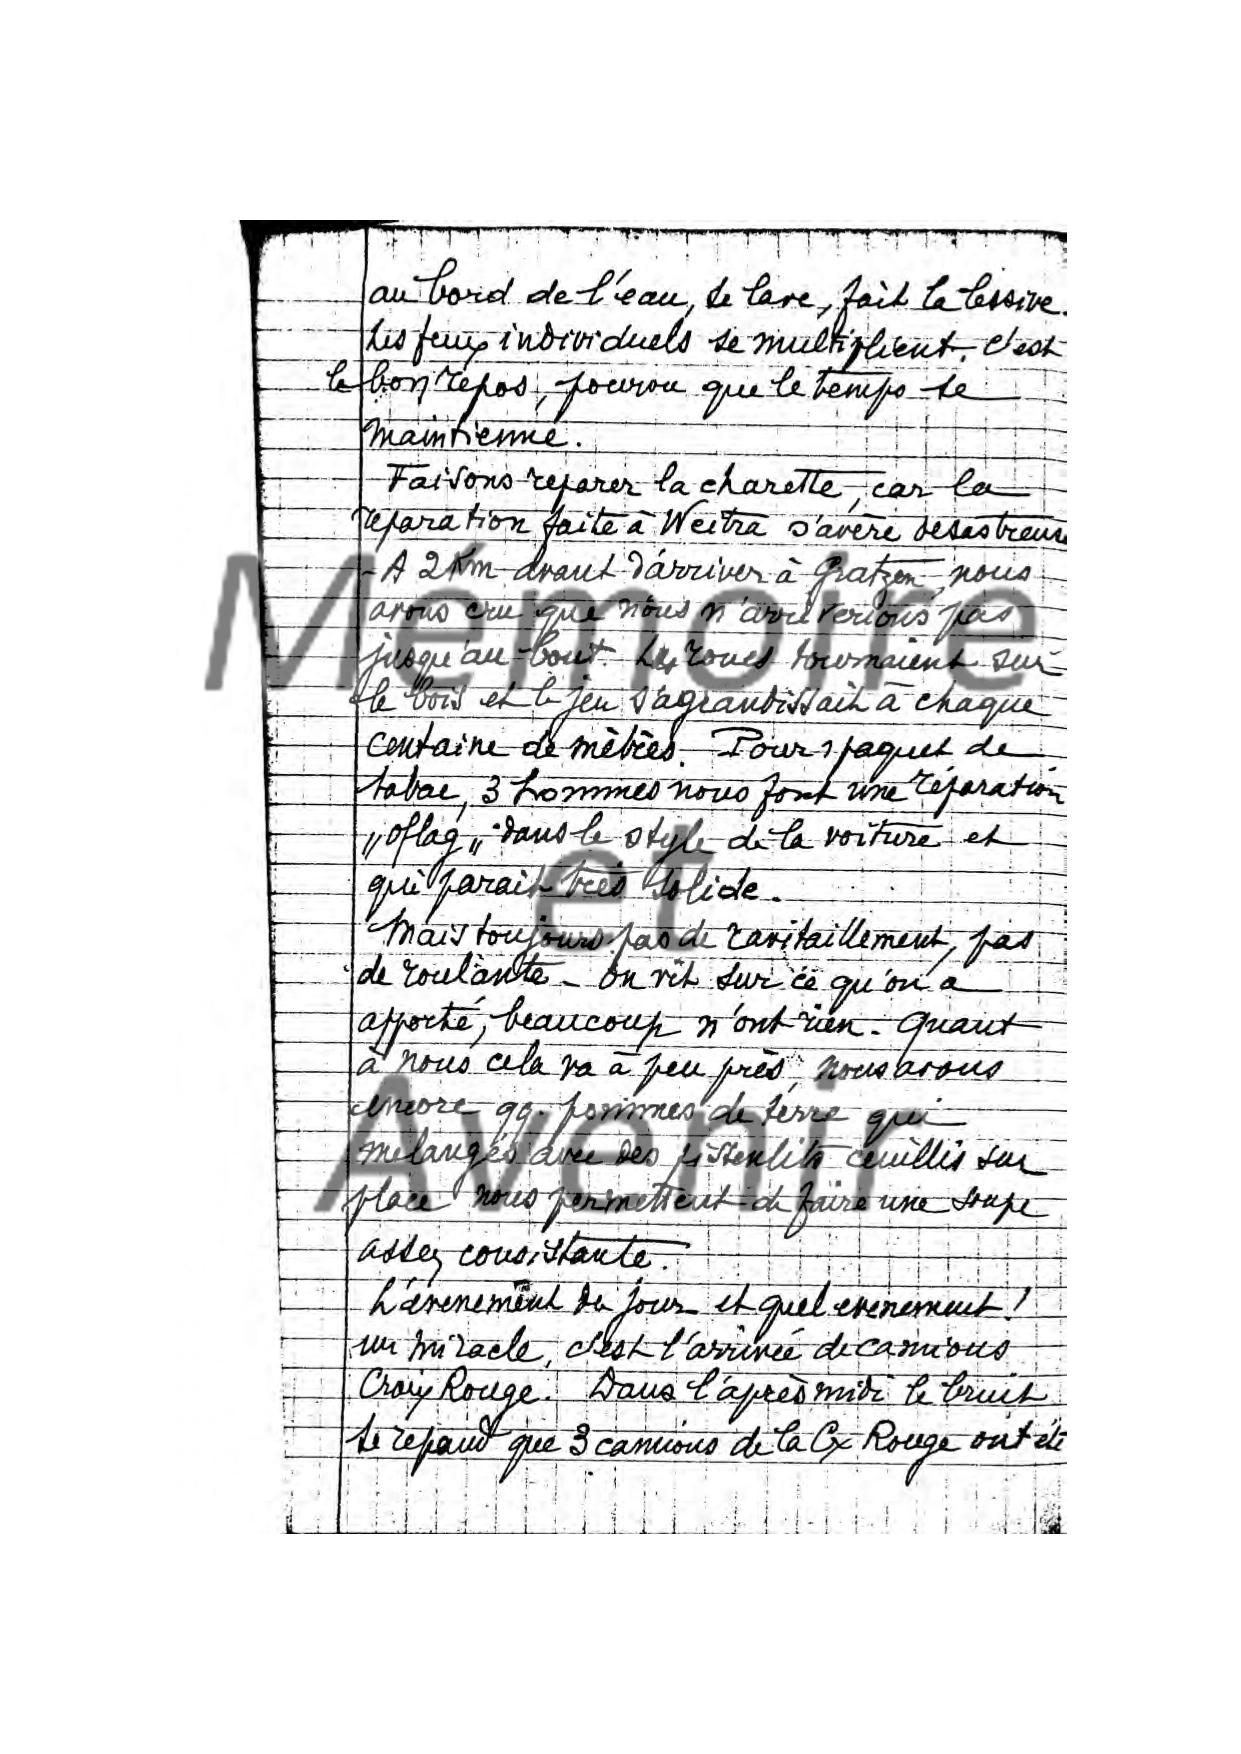 au bord de l'eau, se lave, fait la lessive.
Les feux individuels se multiplient. C'est
le bon repos, pourvu que le temps se
maintienne.
Faisons reparer la charette, car la
reparation faite à Weitra s'avère desastreuse
- A 2 Km avant d'arriver à Gratzen, nous
avons cru que nous n'arriverions pas
jusqu'au bout. Les roues tournaient sur
le bois et le jeu s'agrandissait à chaque
centaine de mètres. Pour 1 paquet de
tabac, 3 hommes nous font une réparation
„oflag„ dans le style de la voiture et
qui parait très solide.
Mais toujours pas de ravitaillement, pas
de roulante - on vit sur ce qu'on a
apporté, beaucoup n'ont rien. Quant
à nous cela va à peu près, nous avons
encore qq. pommes de terre qui
melangés avec des pissenlits ceuillis sur
place nous permettent de faire une soupe
assez consistante.
L'évenement du jour et quel evenement!
un miracle, c'est l'arrivée de camions
Croix Rouge. Dans l'après midi le bruit
se repand que 3 camions de la Cx Rouge ont été
Mémoire
et
Avenir